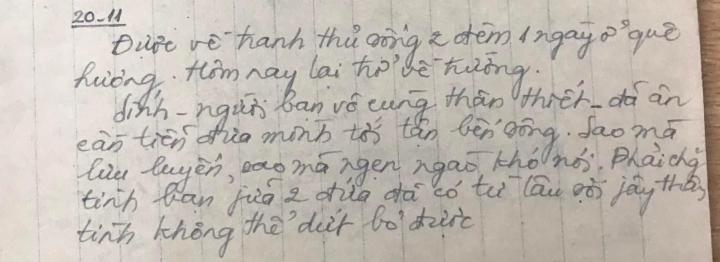 20-11
Được về tranh thủ sống 2 đêm 1 ngày ở quê
hương. Hôm nay lại trở về trường.
Dính - người bạn vô cùng thân thiết - đã ân
cần tiễn đưa mình tới tận bến sông. Sao mà
lưu luyến, sao mà ngẹn ngào khó nói. Phải chă
tình bạn jữa 2 đứa đã có từ lâu rồi jây thân
tình không thể dứt bỏ được